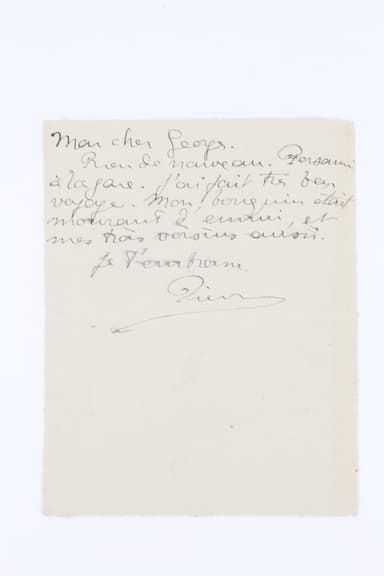 Mon cher Georges.
Rien de nouveau. Personne
à la gare. J'ai fait très bon
voyage. Mon bouquin était
mourant d'ennui, et
mes très voisins aussi.
Je t'embrasse
Pierre